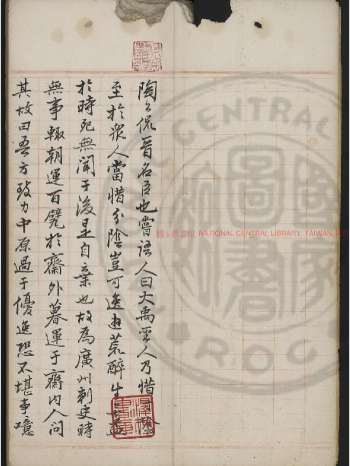 陶公侃晉名臣也嘗語人曰大禹聖人乃惜
至於眾人當惜分陰豈可逸遊荒醉生
於時死無聞于後是自棄也故為廣州刺史時
無事輒朝運百甓於齋外暮運于齋內人問
其故曰吾方致力中原過于優逸恐不堪事噫
NATIONAL CENTRAL LIBRARY, TAIWAN